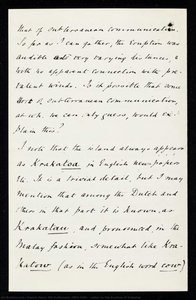 that of subterranean communication.
So far as I can gather, the eruption was
audible at very varying distances, &
with no apparent connection with pre-
valent winds. Is it possible that some
sort of subterranean communication,
at wh. we can only guess, would ex-
plain this?
I note that the island always appears
as Krakatoa in English newspapers
&c. It is a trivial detail, but I may
mention that among the Dutch and
others in that part it is known as
Krakatau, and pronounced, in the
Malay fashion, somewhat like Kra-
katow (as in the English word cow)